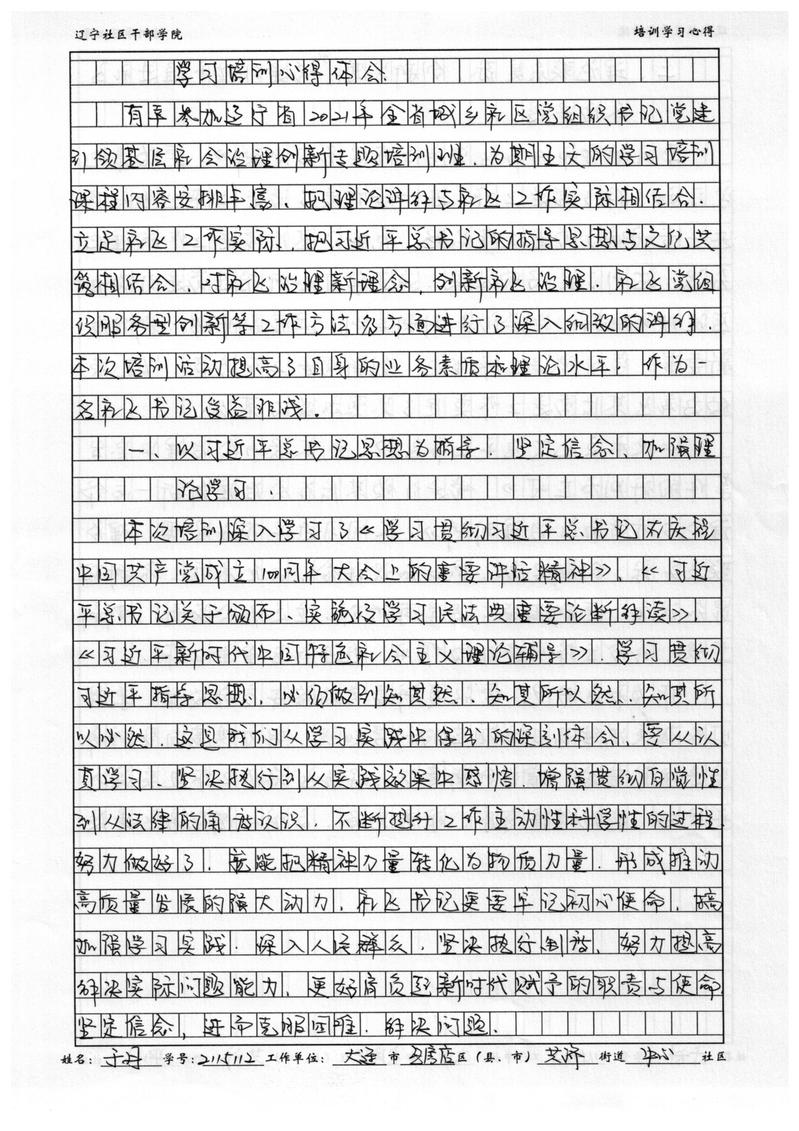 辽宁社区干部学院 培训学习心得
学习培训心得体会
有幸参加辽宁省2021年全省城乡社区党组织书记党建
引领基层社会治理创新专题培训班，为期五天的学习培训
课程内容安排丰富、把理论讲解与社区工作实际相结合.
立足社区工作实际、把习近平总书记的指导思想与文化共
筑相结合、对社区治理新理念，创新社区治理.社区党组
织服务型创新等工作方法多方面进行了深入细致的讲解.
本次培训活动提高了自身的业务素质和理论水平，作为一
名社区书记受益非浅.
一、以习近平总书记思想为指导，坚定信念、加强理
论学习.
本次培训深入学习了《学习贯彻习近平总书记在庆祝
中国共产党成立100周年大会上的重要讲话精神》、《习近
平总书记关于颁布、实施及学习民法典重要论断解读》、
《习近平新时代中国特色社会主义理论辅导》、学习贯彻
习近平指导思想、必须做到知其然、知其所以然、知其所
以必然.这是我们从学习实践中得出的深刻体会、要从认
真学习、坚决执行到从实践效果中感悟.增强贯彻自觉性
到从法律的角度认识.不断提升工作主动性科学性的过程.
努力做好了、就能把精神力量转化为物质力量.形成推动
高质量发展的强大动力.社区书记更要牢记初心使命，
加强学习实践.深入人民群众、坚决执行制度、努力提高
解决实际问题能力、更好肩负起新时代赋予的职责与使命
坚定信念，进而克服困难.解决问题.
姓名：于丹 学号：2115112 工作单位：大连市 瓦房店区（县、市） 街道 中心 社区